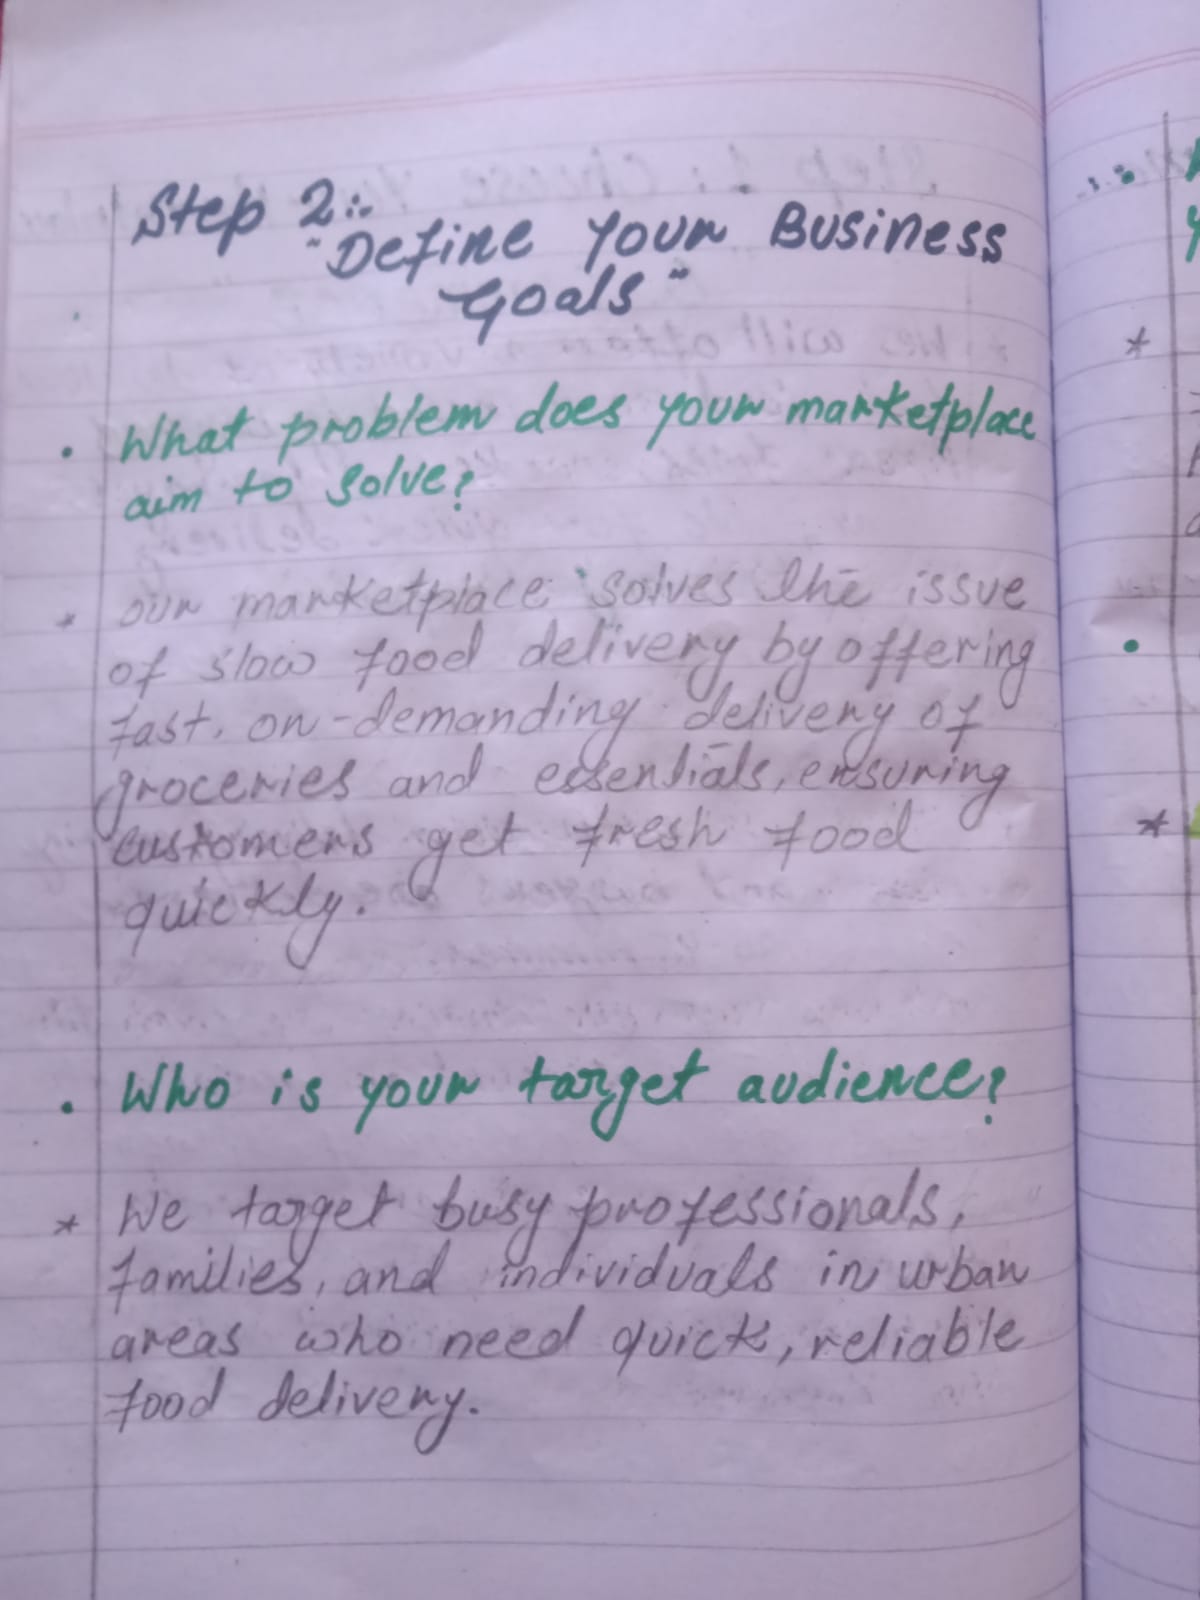 Step 2:-
"Define Your Business
Goals"
• What problem does your marketplace
aim to solve?
* our marketplace solves the issue
of slow food delivery by offering
fast, on-demanding delivery of
groceries and essentials, ensuring
customers get fresh food
quickly.
• Who is your target audience?
* We target busy professionals,
families, and individuals in urban
areas who need quick, reliable
food delivery.